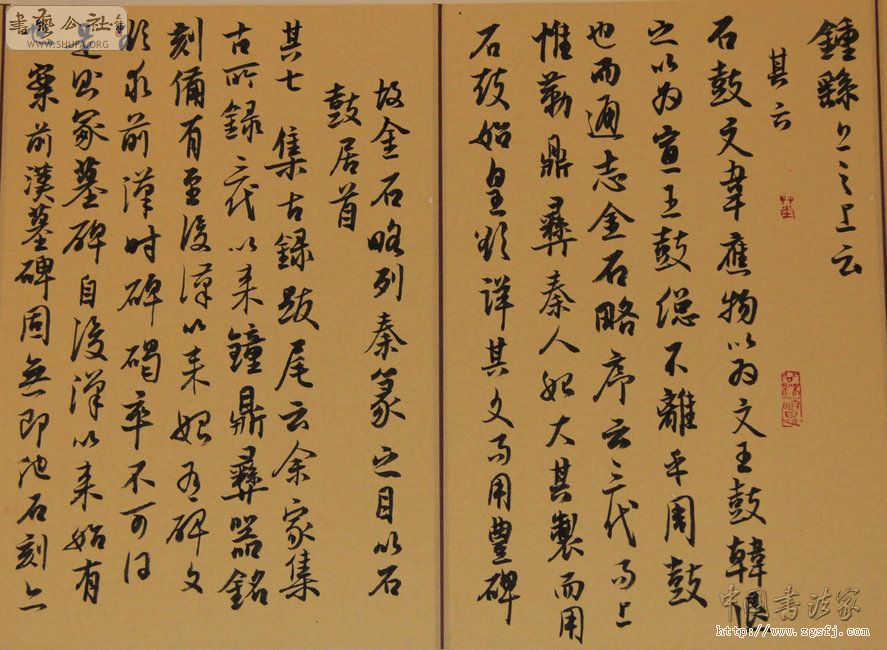 鍾繇之上云
其六
石鼓文韋應物以為文王鼓韓退
之以為宣王鼓總不離乎周鼓
也而通志金石略序云三代而上
惟勒鼎彝秦人始大其製而用
石鼓始皇欲詳其文而用豐碑
故金石略列秦篆之目以石
鼓居首
其七 集古錄跋尾云余家集
古所錄三代以來鐘鼎彝器銘
刻備有至後漢以來始有碑文
欲求前漢時碑碣卒不可得
是則冢墓碑自後漢以來始有
案前漢墓碑固無即他石刻亦
書藝公社
www.SHUFA.ORG
中国书法家
http://www.zgsfj.com